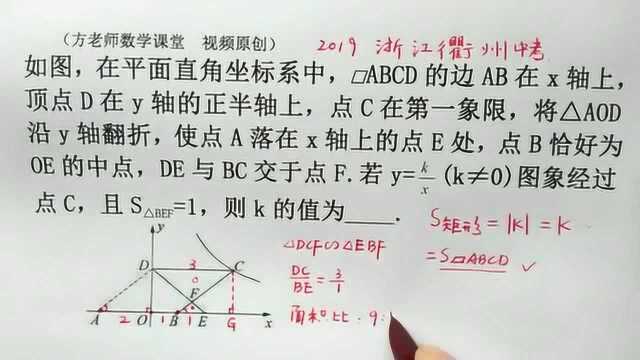 （方老师数学课堂　视频原创）
2019 浙江衢州中考
如图，在平面直角坐标系中，▱ABCD 的边 AB 在 x 轴上，
顶点 D 在 y 轴的正半轴上，点 C 在第一象限，将△AOD
沿 y 轴翻折，使点 A 落在 x 轴上的点 E 处，点 B 恰好为
OE 的中点，DE 与 BC 交于点 F.若 y=k/x (k≠0)图象经过
点 C，且 S△BEF=1，则 k 的值为____.
S矩形=|k|=k
=S▱ABCD ✓
△DCF∽△EBF
DC/BE=3/1
面积比：9:
y
D 3 C
F
A 2 O 1 B 1 E G x